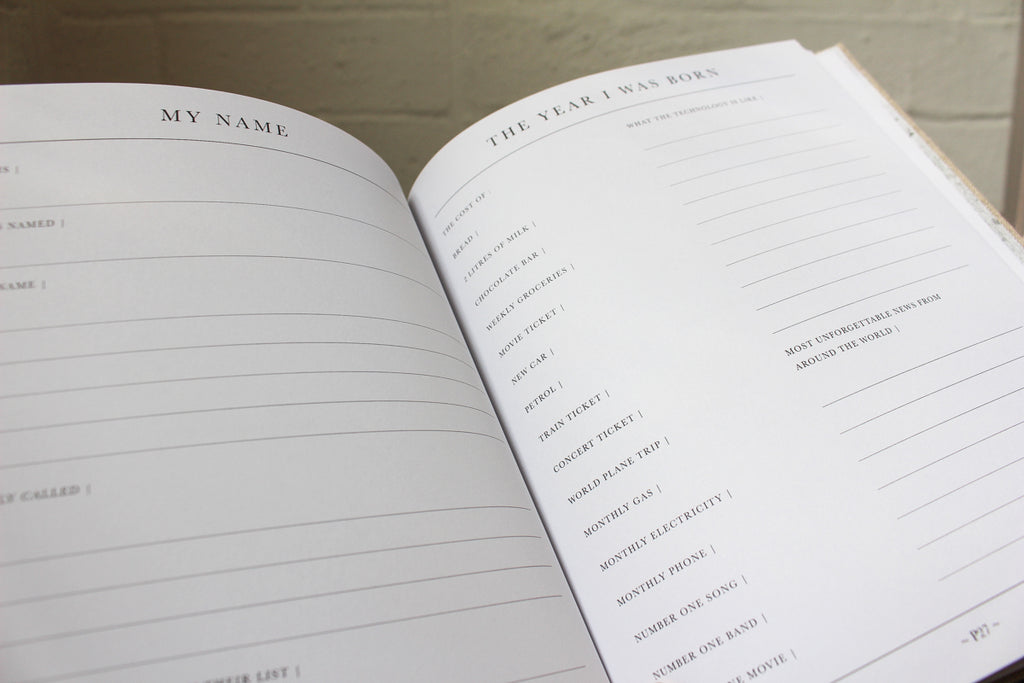 MY NAME
NAMED |
NAME |
CALLED |
THEIR LIST |
THE YEAR I WAS BORN
THE COST OF :
BREAD |
2 LITRES OF MILK |
CHOCOLATE BAR |
WEEKLY GROCERIES |
MOVIE TICKET |
NEW CAR |
PETROL |
TRAIN TICKET |
CONCERT TICKET |
WORLD PLANE TRIP |
MONTHLY GAS |
MONTHLY ELECTRICITY |
MONTHLY PHONE |
NUMBER ONE SONG |
NUMBER ONE BAND |
NE MOVIE |
WHAT THE TECHNOLOGY IS LIKE |
MOST UNFORGETTABLE NEWS FROM
AROUND THE WORLD |
~ P27 ~